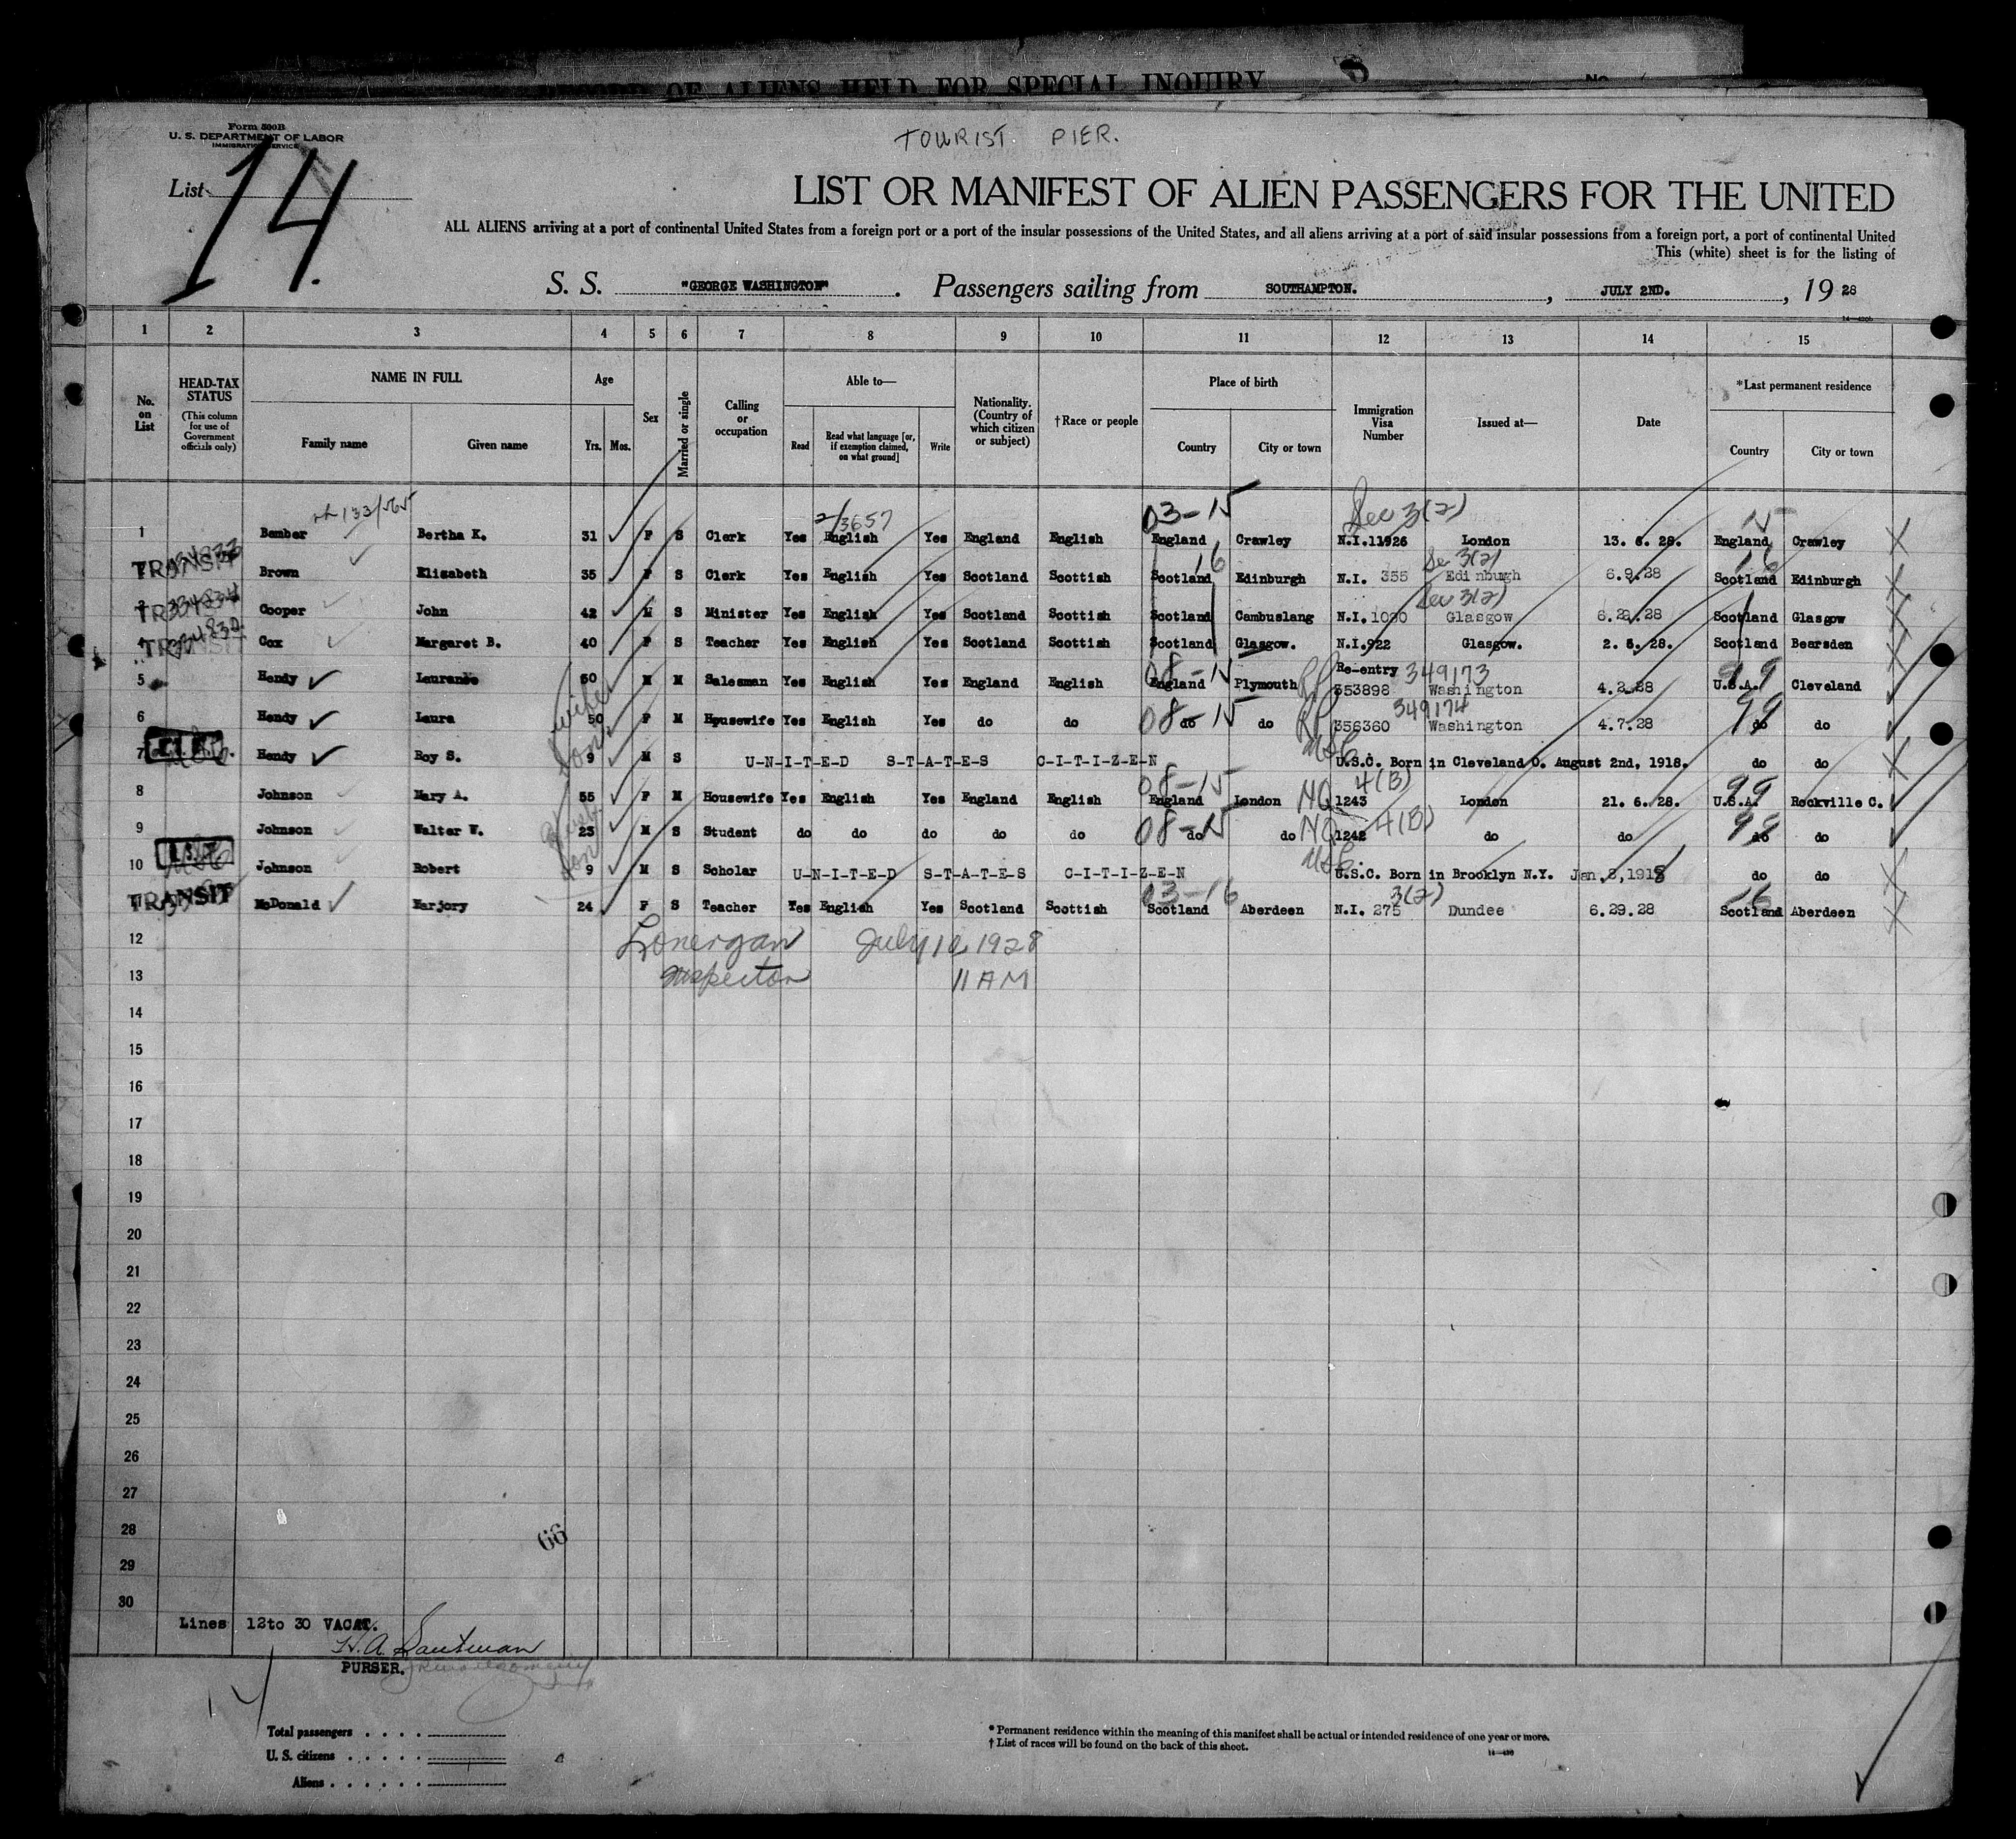 RECORD OF ALIENS HELD FOR SPECIAL INQUIRY
No.
Form 500B
U. S. DEPARTMENT OF LABOR
IMMIGRATION SERVICE
TOURIST PIER.
List 14.
LIST OR MANIFEST OF ALIEN PASSENGERS FOR THE UNITED
ALL ALIENS arriving at a port of continental United States from a foreign port or a port of the insular possessions of the United States, and all aliens arriving at a port of said insular possessions from a foreign port, a port of continental United
This (white) sheet is for the listing of
S. S. "GEORGE WASHINGTON". Passengers sailing from SOUTHAMPTON. , JULY 2ND. , 19 28
1 2 3 4 5 6 7 8 9 10 11 12 13 14 15
No. on List
HEAD-TAX STATUS (This column for use of Government officials only)
NAME IN FULL
Family name Given name
Age
Yrs. Mos.
Sex
Married or single
Calling or occupation
Able to—
Read
Read what language [or, if exemption claimed, on what ground]
Write
Nationality. (Country of which citizen or subject)
†Race or people
Place of birth
Country City or town
Immigration Visa Number
Issued at—
Date
*Last permanent residence
Country City or town
133/565 2/3657 03-15 Sec 3(2) 15
1 Bamber Bertha K. 31 F S Clerk Yes English Yes England English England Crawley N.I.11926 London 13. 6. 28. England Crawley
TRANSIT 16 Sec 3(2) 16
2 Brown Elizabeth 35 F S Clerk Yes English Yes Scotland Scottish Scotland Edinburgh N.I. 355 Edinburgh 6.9.28 Scotland Edinburgh
TRANSIT 334834 Sec 3(2)
3 Cooper John 42 M S Minister Yes English Yes Scotland Scottish Scotland Cambuslang N.I.1090 Glasgow 6.29.28 Scotland Glasgow
TRANSIT 334832
4 Cox Margaret B. 40 F S Teacher Yes English Yes Scotland Scottish Scotland Glasgow. N.I.922 Glasgow. 2. 6. 28. Scotland Bearsden
08-15 RP Re-entry 349173 99
5 Hendy Laurance 50 M M Salesman Yes English Yes England English England Plymouth 353898 Washington 4.2.28 U.S.A. Cleveland
wife 08-15 RP 349174 99
6 Hendy Laura 50 F M Housewife Yes English Yes do do do do 356360 Washington 4.7.28 do do
son USC
7 Hendy Roy S. 9 M S U-N-I-T-E-D S-T-A-T-E-S C-I-T-I-Z-E-N U.S.C. Born in Cleveland O. August 2nd, 1918. do do
08-15 NQ 4(B) 99
8 Johnson Mary A. 55 F M Housewife Yes English Yes England English England London 1243 London 21. 6. 28. U.S.A. Rockville C.
08-15 NQ 4(B) 99
9 Johnson Walter W. 23 M S Student do do do do do do do 1242 do do do do
son USC
10 Johnson Robert 9 M S Scholar U-N-I-T-E-D S-T-A-T-E-S C-I-T-I-Z-E-N U.S.C. Born in Brooklyn N.Y. Jan.8,1918 do do
TRANSIT 03-16 3(2) 16
11 McDonald Marjory 24 F S Teacher Yes English Yes Scotland Scottish Scotland Aberdeen N.I. 275 Dundee 6.29.28 Scotland Aberdeen
12 Lonergan July 10 1928
13 Inspector 11 AM
14
15
16
17
18
19
20
21
22
23
24
25
26
27
28
66
29
30
Lines 12 to 30 VACAT.
PURSER.
14
Total passengers
U. S. citizens
Aliens
* Permanent residence within the meaning of this manifest shall be actual or intended residence of one year or more.
† List of races will be found on the back of this sheet.